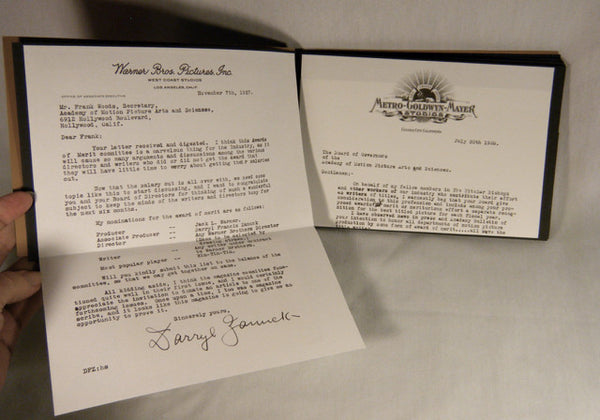 Warner Bros. Pictures, Inc.
WEST COAST STUDIOS
LOS ANGELES, CALIF.
OFFICE OF ASSOCIATE EXECUTIVE
November 7th, 1927.
Mr. Frank Woods, Secretary,
Academy of Motion Picture Arts and Sciences,
6912 Hollywood Boulevard,
Hollywood, Calif.
Dear Frank:
Your letter received and digested. I think this Awards
of Merit committee is a marvelous thing for the industry, as it
will cause so many arguments and discussions among the various
directors and writers who did or did not get the award that
they will have little time to worry about getting their salaries
cut.
Now that the salary cut is all over with, we need some
topic like this to start discussing, and I want to congratulate
you and your Board of Directors for thinking of such a wonderful
subject to keep the minds of the writers and directors busy for
the next six months.
My nominations for the award of merit are as follows:
Producer -- Jack L. Warner
Associate Producer -- Darryl Francis Zanuck
Director -- Any Warner Brothers Director
Writer --
to Warner Brothers.
Most popular player -- Rin-Tin-Tin.
Will you kindly submit this list to the balance of the
committee, so that we may get together on same.
All kidding aside, I think the magazine committee func-
tioned quite well in their first issue, and I would certainly
appreciate the invitation to donate an article to one of the
forthcoming issues. Once upon a time, I was a magazine
scribe, and it looks like this magazine is going to give me an
opportunity to prove it.
Sincerely yours,
Darryl Zanuck
DFZ:hs
METRO-GOLDWYN-MAYER
STUDIOS
CULVER CITY, CALIFORNIA
July 20th
The Board of Governors
of the
Academy of Motion Picture Arts and Sciences.
Gentlemen:-
On behalf of my fellow members in
other workers of our industry who contribute their effort
as writers of titles, I earnestly beg that your board give
consideration to this profession and include among your pro-
posed awards of meritorious effort a separate recog-
nition for the best titled picture for each fiscal year.
I have observed news in press and Academy bulletin of
your intention to honor all departments of motion picture
production by some form of award of merit